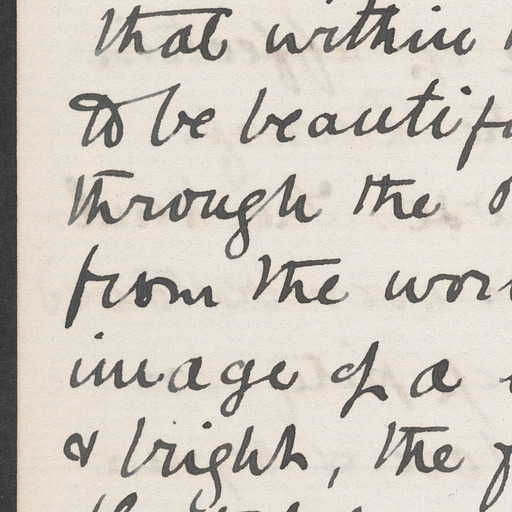 that within
to be beautif
through the
from the wor
image of a
& bright, the